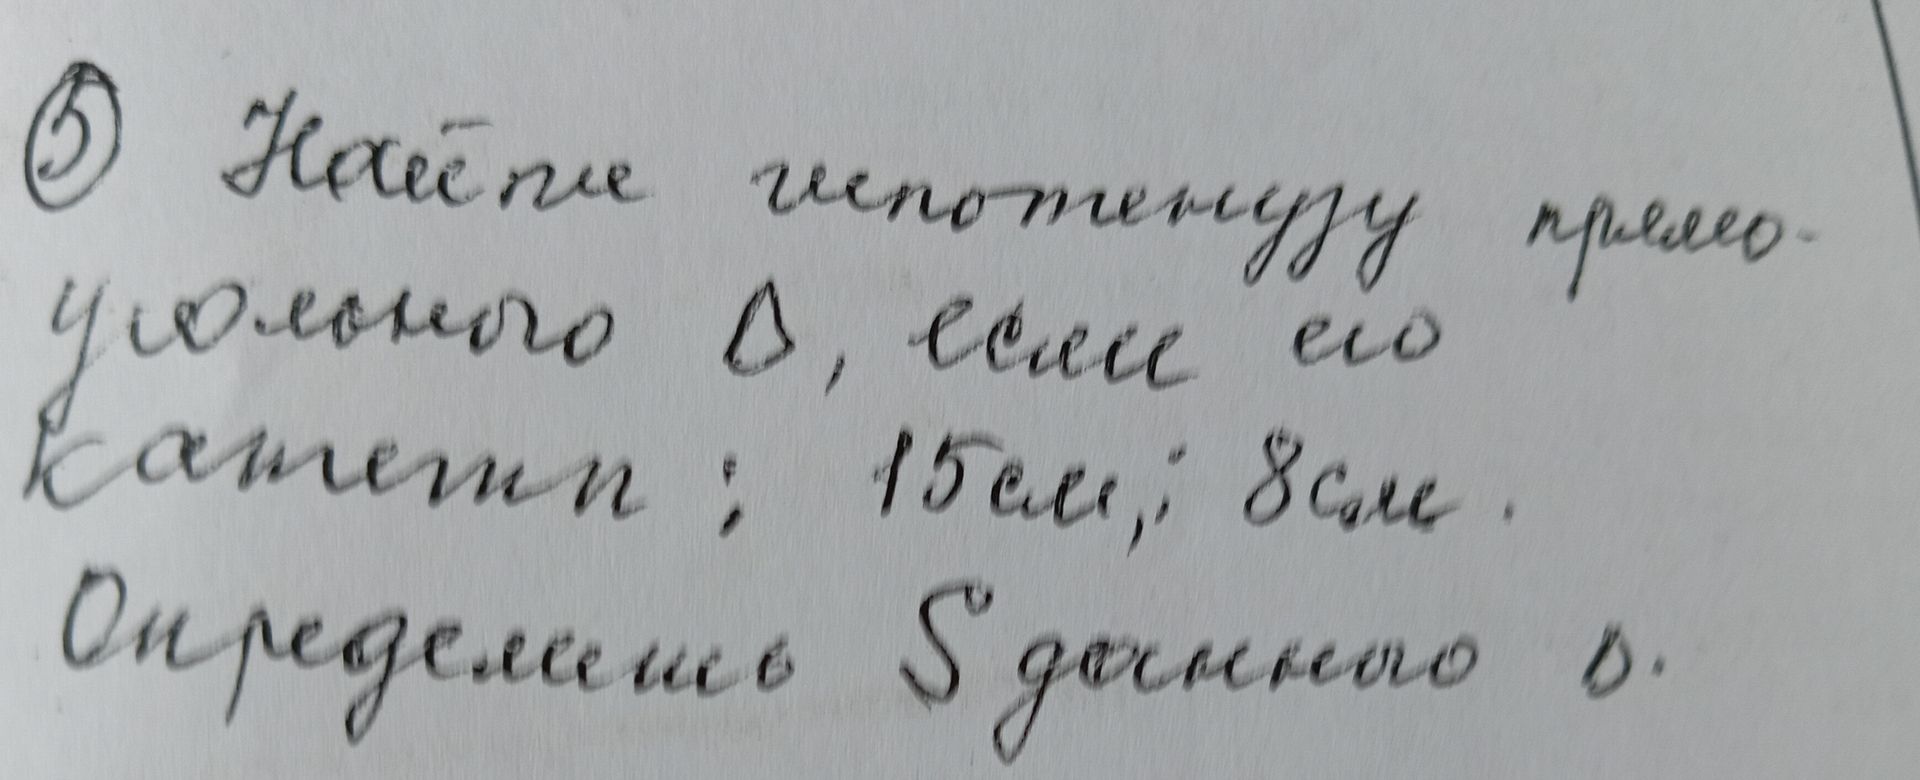 ⑤ Найти гипотенузу прямо-
угольного Δ, если его
катеты: 15см,; 8см.
Определить S данного Δ.